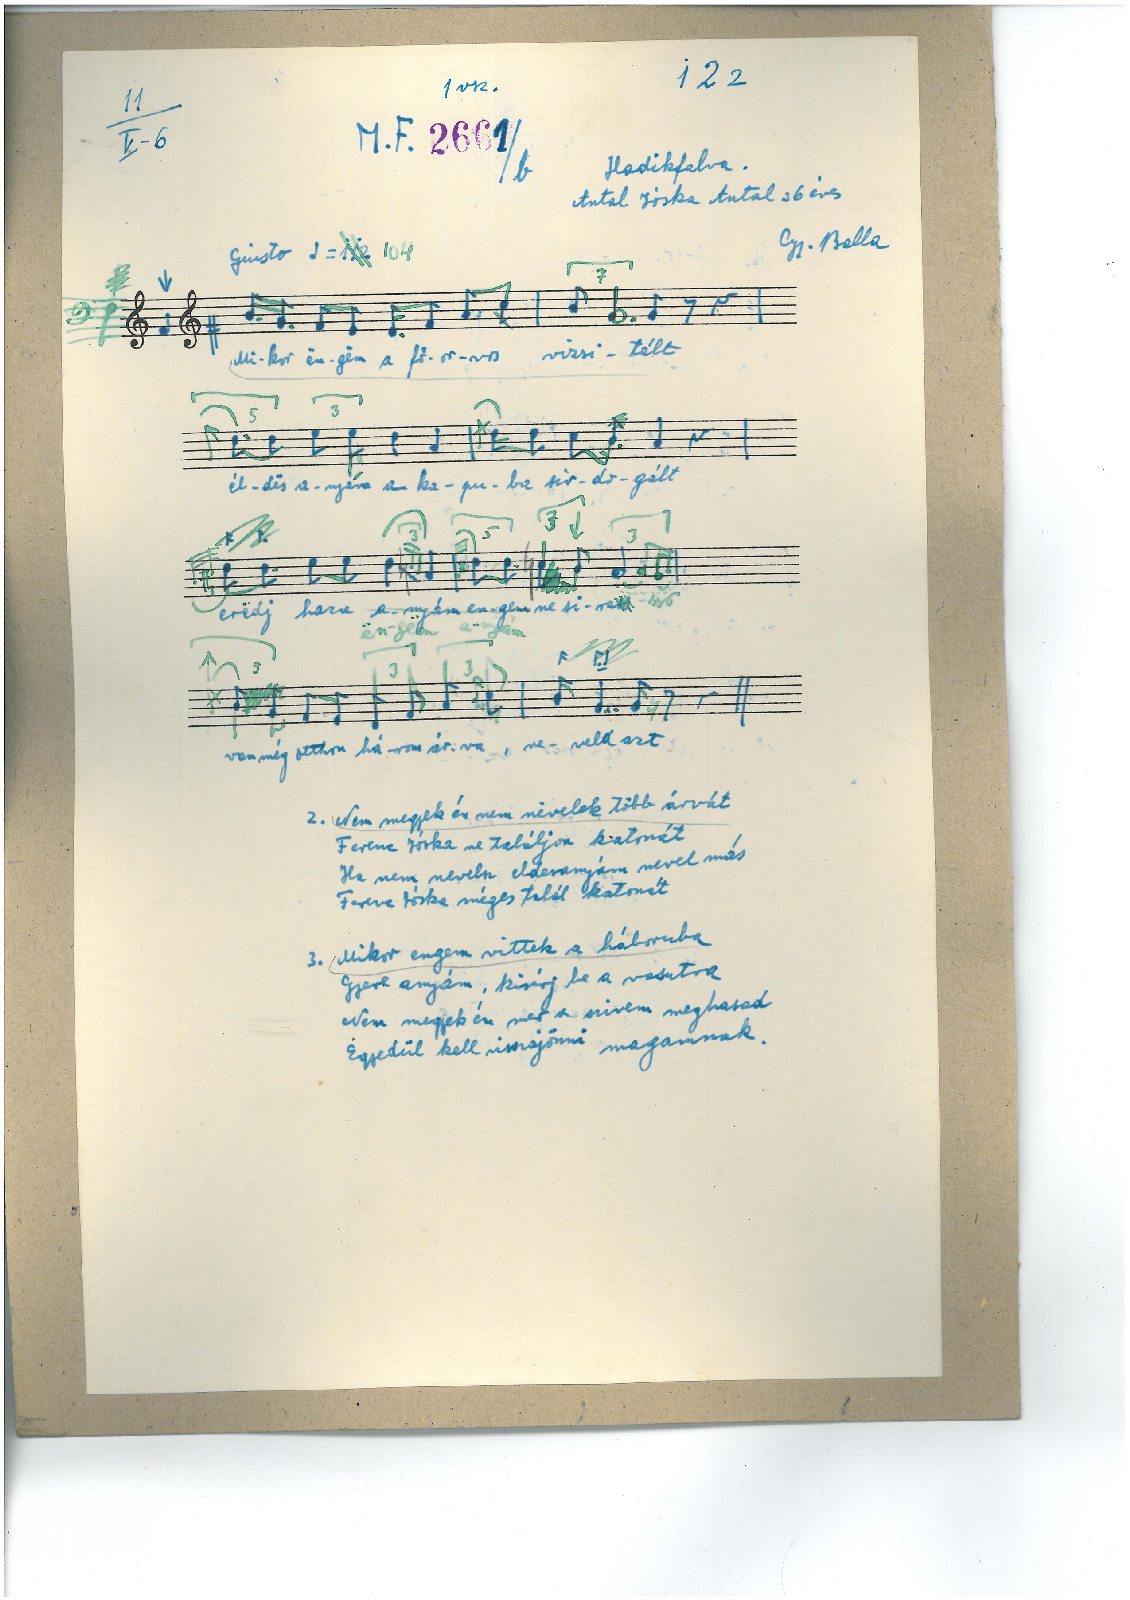 11
V-6
1 vsz.
122
M.F. 2661/b
Hadikfalva.
Antal Jóska Antal 36 éves
Gy. Balla
Giusto ♩ = 104
7
Mi-kor ën-gëm a fő-or-vos vizsi-tált
5 3
él-dës a-nyám a ka-pu-ba sir-do-gált
3 5 3 3
erëdj haza a-nyám en-gem ne si-
ën-gëm a-nyám
3 3 3
van még otthon há-rom ár-va, ne-veld azt
2. Nem megyek én nem nevelek több árvát
Ferenc Jóska ne találjon katonát
Ha nem nevelsz éldesanyám nevel más
Ferenc Jóska méges talál katonát
3. Mikor engem vittek a háboruba
Gyere anyám, kisérj be a vasutra
Nem megyek én mer a szivem meghasad
Egyedül kell visszajönni magamnak.